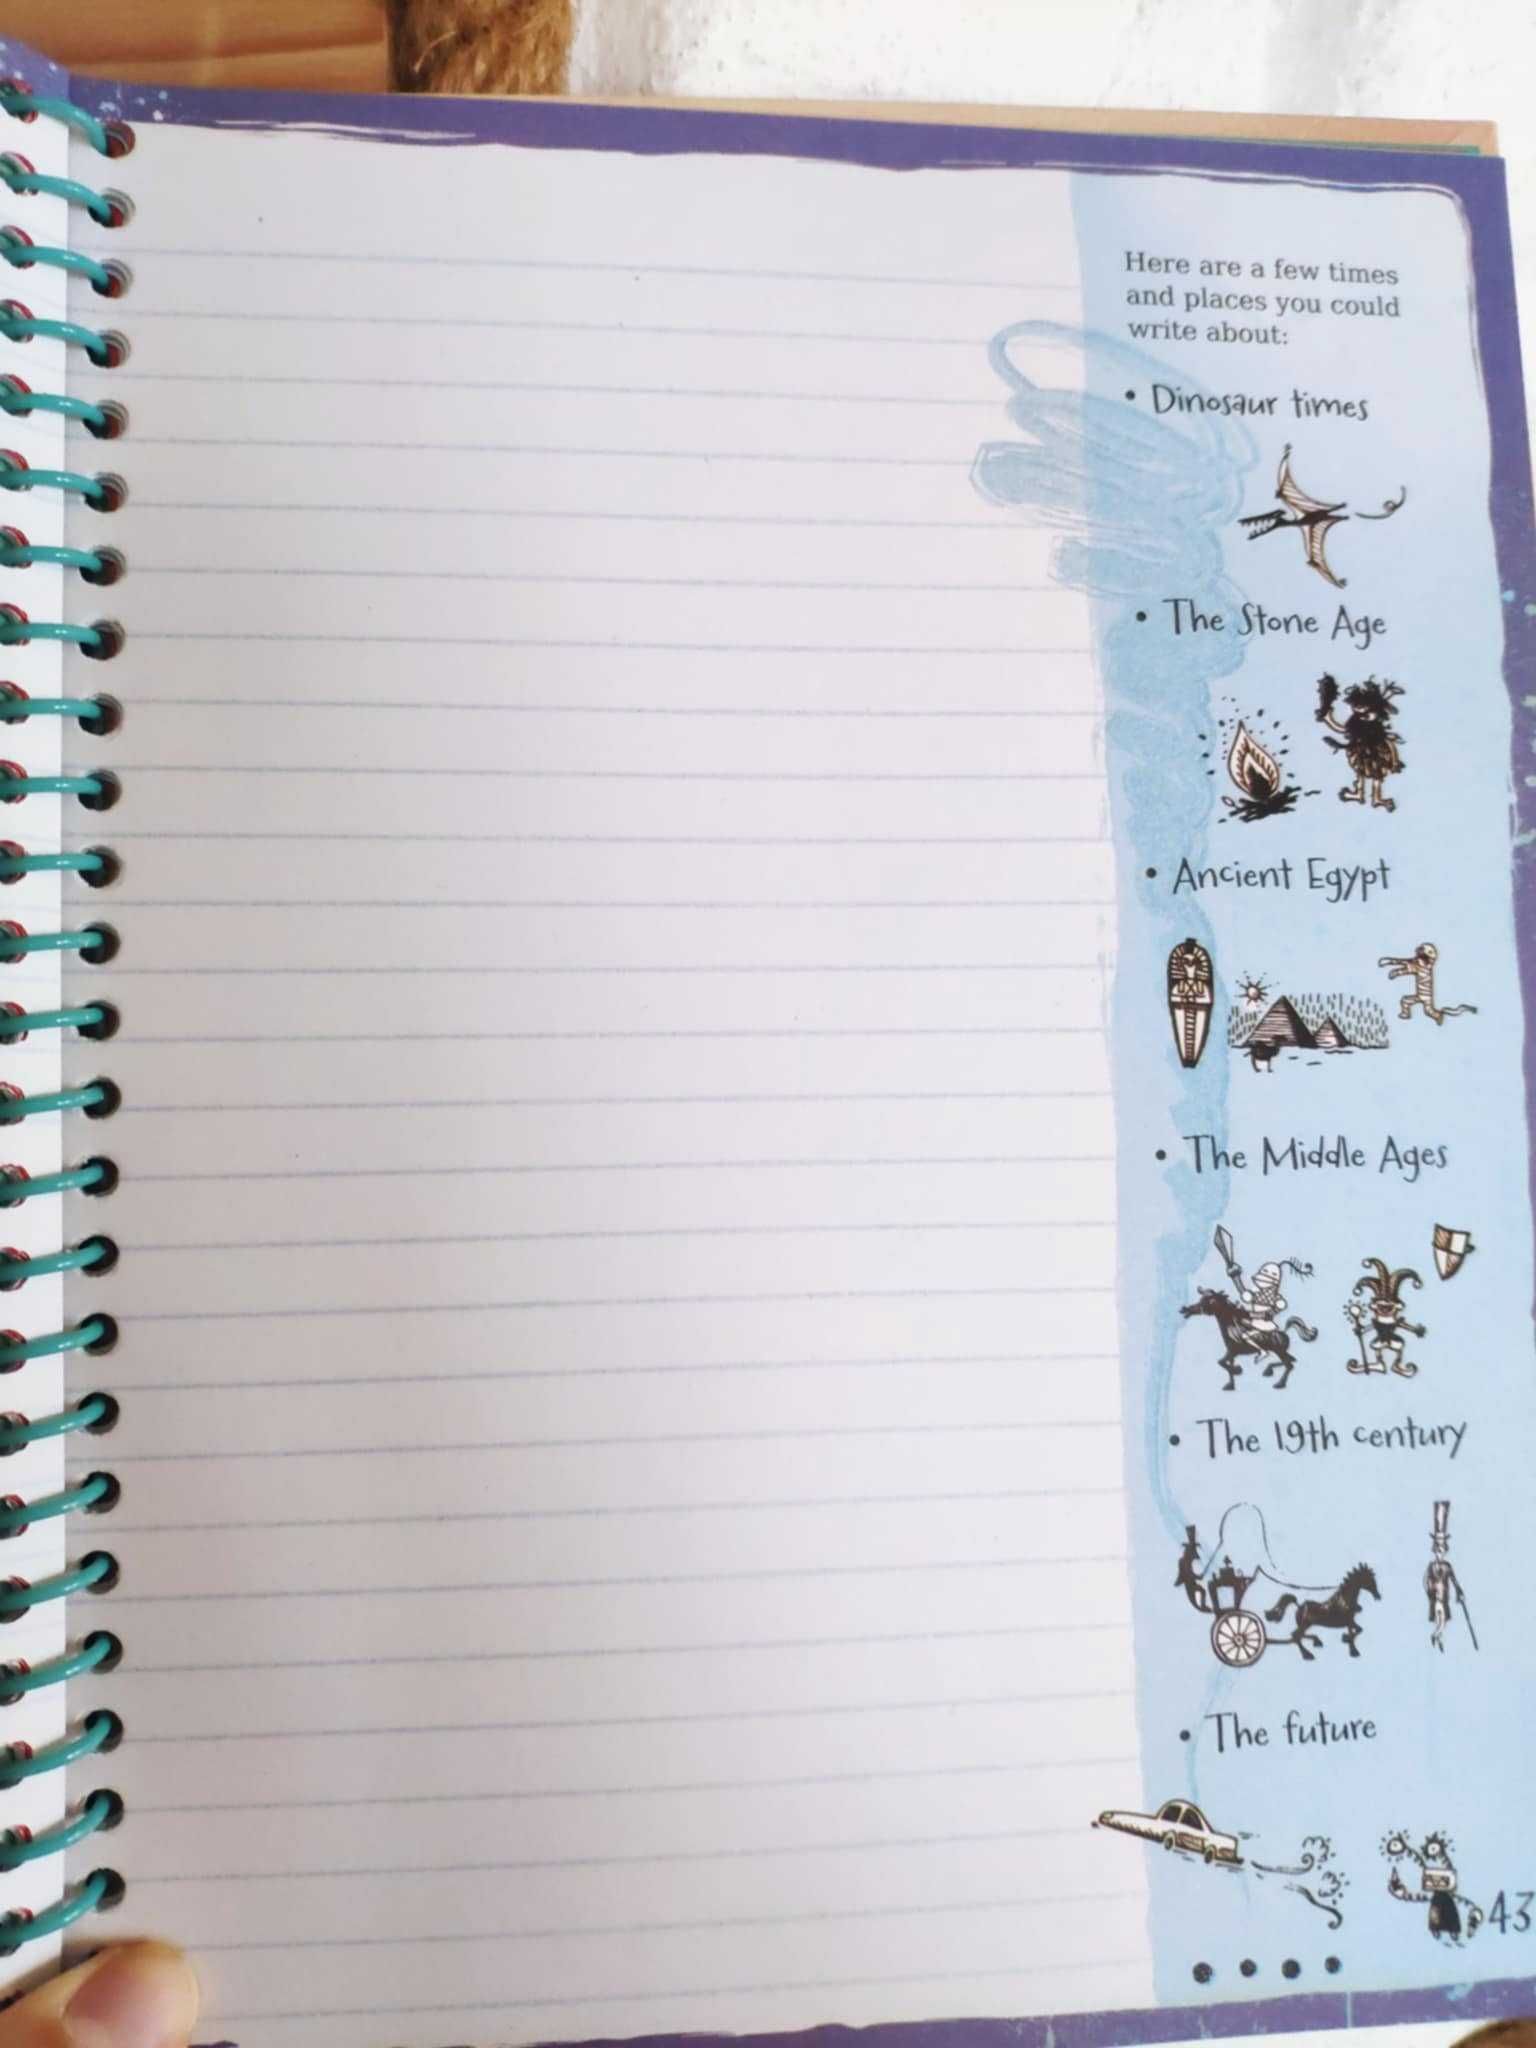 Here are a few times
and places you could
write about:
• Dinosaur times
• The Stone Age
• Ancient Egypt
• The Middle Ages
• The 19th century
• The future
43